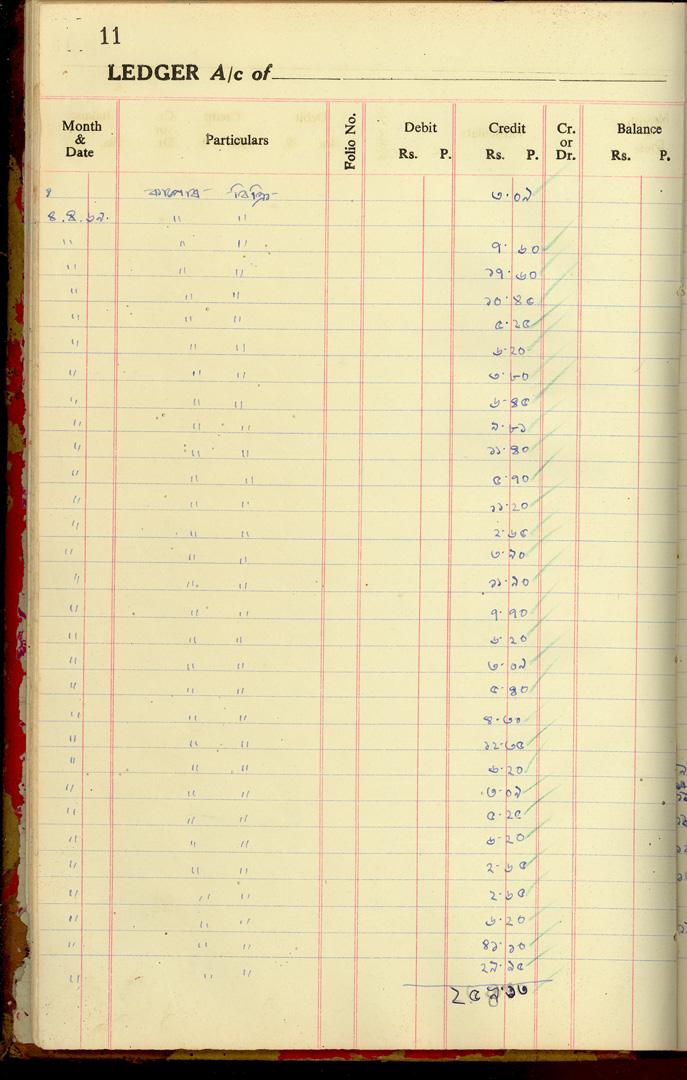 11
LEDGER A/c of
Month & Date Particulars Folio No. Debit Rs. P. Credit Rs. P. Cr. or Dr. Balance Rs. P.
বিক্রি ৩.০৯
৪.৪.৬৯. " "
" " " ৭.৬০
" " " ১৭.৬০
" " " ১০.৪৫
" " " ৫.২৫
" " " ৬.২০
" " " ৩.৮০
" " " ৬.৪৫
" " " ৯.৮১
" " " ১১.৪০
" " " ৫.৭০
" " " ১১.২০
" " " ২.৬৫
" " " ৩.৯০
" " " ১১.৯০
" " " ৭.৭০
" " " ৬.২০
" " " ৩.০৯
" " " ৫.৪০
" " " ৪.৩০
" " " ১২.৩৫
" " " ৬.২০
" " " ৩.০৯
" " " ৫.২৫
" " " ৬.২০
" " " ২.৬৫
" " " ২.৬৫
" " " ৬.২০
" " " ৪১.১০
" " " ২৯.৯৫